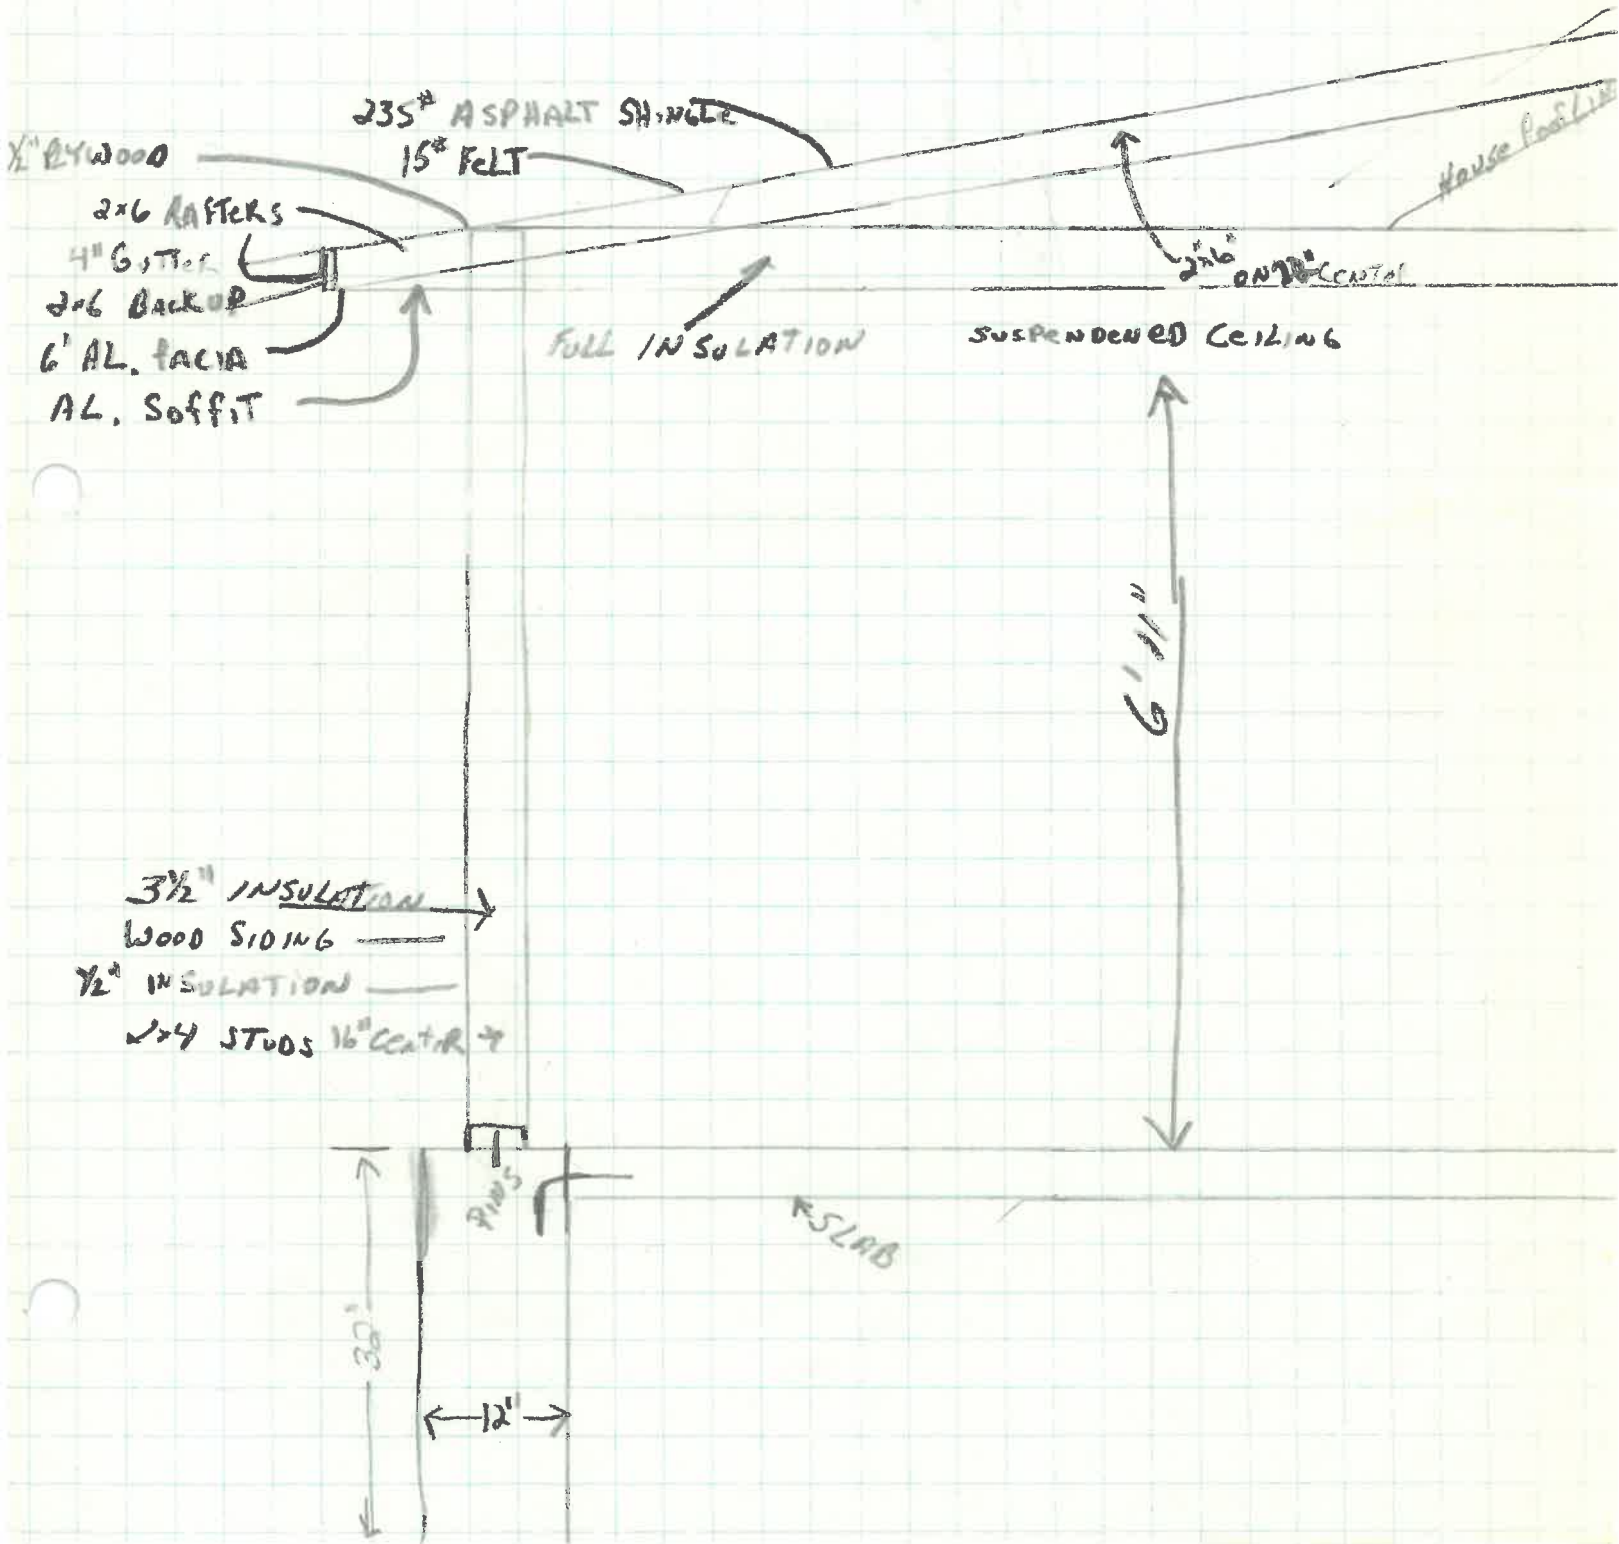 235# ASPHALT SHINGLE
15# FELT
½" PLYWOOD
2x6 RAFTERS
4" GUTTER
2x6 BACKUP
6' AL. FACIA
AL. SOFFIT
FULL INSULATION
HOUSE ROOFLINE
2"x6"
ON CENTER
SUSPENDENED CEILING
6' 11"
3½" INSULATION
WOOD SIDING
½" INSULATION
2x4 STUDS 16" CENTER
PINS
SLAB
12"